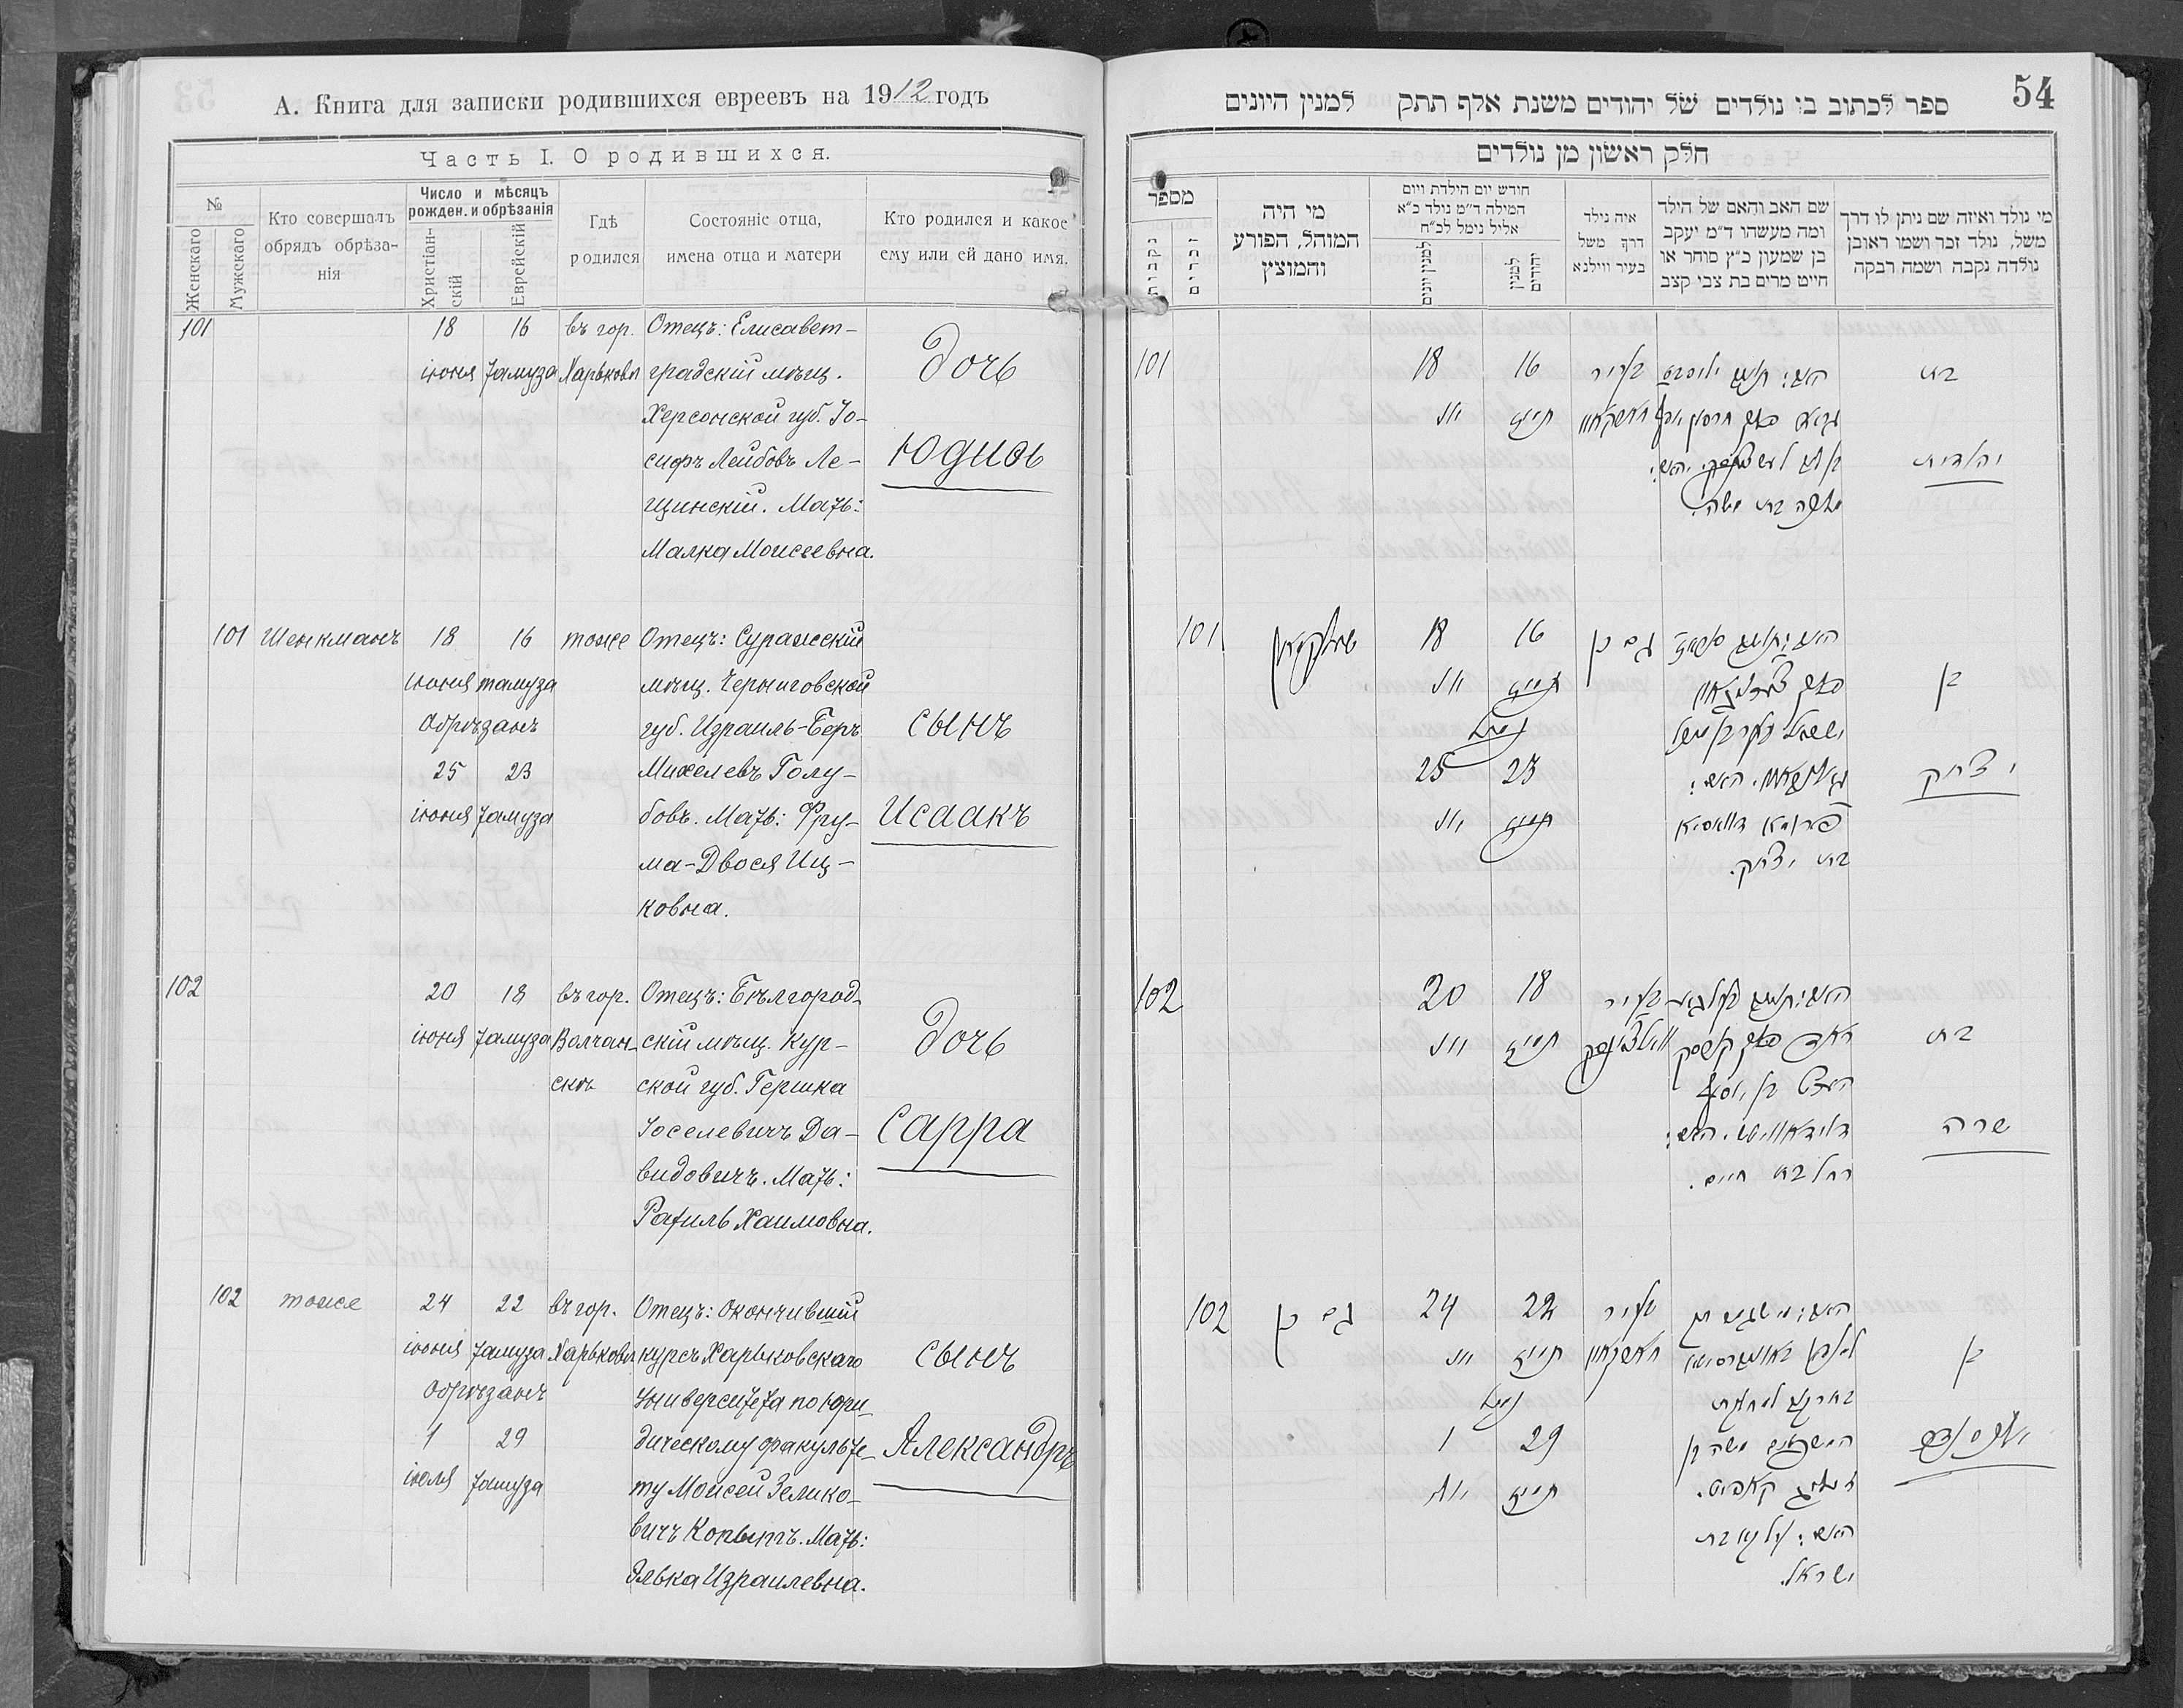 А. Книга для записки родившихся евреевъ на 1912 годъ
Часть I. О родившихся.
№
Женскаго
Мужскаго
Кто совершалъ
обрядъ обрѣза-
нія
Число и мѣсяцъ
рожден. и обрѣзанія
Христіан-
скій
Еврейскій
Гдѣ
родился
Состояніе отца,
имена отца и матери
Кто родился и какое
ему или ей дано имя.
101
18
іюня
16
Тамуза
въ гор.
Харьковѣ
Отецъ: Елисавет-
градскій мѣщ.
Херсонской губ. Іо-
сифъ Лейбовъ Ле-
щинскій. Мать:
Малка Моисеевна.
дочь
Юдиѳь
101
Шенкманъ
18
іюня
16
тамуза
Обрѣзанъ
25
іюня
23
Тамуза
тоже
Отецъ: Суражскій
мѣщ. Черниговской
губ. Израиль-Беръ
Михелевъ Голу-
бовъ. Мать: Фру-
ма-Двося Иц-
ковна.
сынъ
Исаакъ
102
20
іюня
18
Тамуза
въ гор.
Волчан-
скѣ
Отецъ: Бѣлгород-
скій мѣщ. Кур-
ской губ. Гершка
Іоселевичъ Да-
видовичъ. Мать:
Рахиль Хаимовна.
дочь
Сарра
102
тоже
24
іюня
22
Тамуза
Обрѣзанъ
1
іюля
29
Тамуза
въ гор.
Харьковѣ
Отецъ: Окончившій
курсъ Харьковскаго
Университета по юри-
дическому факульте-
ту Моисей Зелико-
вичъ Копытъ. Мать:
Элька Израилевна.
сынъ
Александръ
54
ספר לכתוב בו נולדים של יהודים משנת אלף תתק למנין היונים
חלק ראשון מן נולדים
מספר
נקבות
זכרים
מי היה
המוהל, הפורע
והמוצץ
חודש יום הילדת ויום
המילה ד״מ נולד כ״א
אליל נימל לכ״ח
למנין יונים
למנין
יהודים
איה נילד
דרך משל
בעיר ווילנא
שם האב והאם של הילד
ומה מעשהו ד״מ יעקב
בן שמעון כ״ץ סוחר או
חייט מרים בת צבי קצב
מי נולד ואיזה שם ניתן לו דרך
משל, נולד זכר ושמו ראובן
נולדה נקבה ושמה רבקה
101
18
יוני
16
תמוז
בעיר
מלכה בת משה.
בת
יהודית
101
שענקמאן
18
יוני
16
תמוז
נימול
25
יוני
23
תמוז
גם כן
בת יצחק.
בן
יצחק
102
20
יוני
18
תמוז
בעיר
רחל בת חיים.
בת
שרה
102
גם כן
24
יוני
22
תמוז
נימול
1
יולי
29
תמוז
בעיר
ישראל.
בן